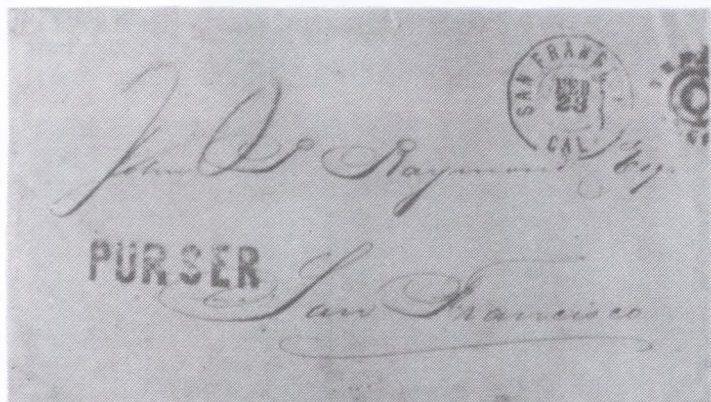 SAN FRANC
FEB
23
CAL.
John Raymond Esq.
PURSER
San Francisco